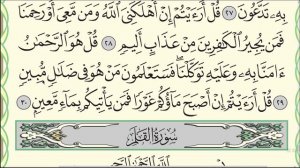 بِهِۦ تَدَّعُونَ ٢٧ قُلْ أَرَءَيْتُمْ إِنْ أَهْلَكَنِىَ ٱللَّهُ وَمَن مَّعِىَ أَوْ رَحِمَنَا
فَمَن يُجِيرُ ٱلْكَٰفِرِينَ مِنْ عَذَابٍ أَلِيمٍ ٢٨ قُلْ هُوَ ٱلرَّحْمَٰنُ
ءَامَنَّا بِهِۦ وَعَلَيْهِ تَوَكَّلْنَا ۖ فَسَتَعْلَمُونَ مَنْ هُوَ فِى ضَلَٰلٍ مُّبِينٍ
٢٩ قُلْ أَرَءَيْتُمْ إِنْ أَصْبَحَ مَآؤُكُمْ غَوْرًا فَمَن يَأْتِيكُم بِمَآءٍ مَّعِينٍۭ ٣٠
سُورَةُ القَلَمِ